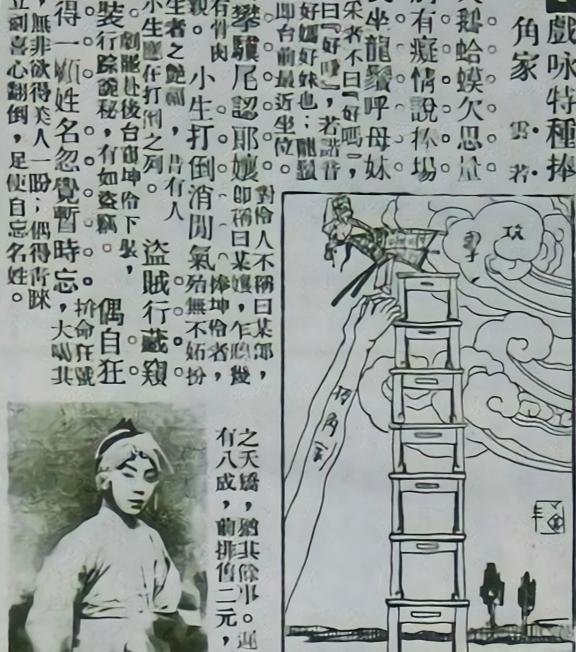 戲咏特種捧
角家 雲若
鵝蛤蟆欠思量
有癡情說捧場
坐龍鬚呼母妹
采者不曰『好嗎』,
曰『好嘿』,若諧音
好媽好妹也;龍鬚
即台前最近坐位。
攀驥尾認耶孃
對伶人不稱曰某郎,
即稱曰某孃,乍聽幾
有骨肉
親。
小生打倒消閒氣
捧坤伶者,
殆無不妬扮
生者之艷福,昔有人
小生應在打倒之列。
盜賊行藏窺
劇散赴後台窺坤伶下裝,
裝行踪詭秘,有如盜竊。
偶自狂
得一
姓名忽覺暫時忘,
命狂號
大喝其
無非欲得美人一盼;偶得青睞
立刻喜心翻倒,足使自忘名姓。
之天嬌,猶其餘事。還
有八成,前排售二元,